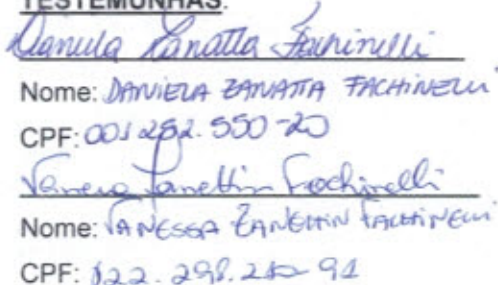 TESTEMUNHAS:
Daniela Zanatta Fachinelli
Nome: DANIELA ZANATTA FACHINELLI
CPF: 001 282. 550-20
Vanessa Zanettin Fachinelli
Nome: VANESSA ZANETTIN FACHINELLI
CPF: 022. 298. 210-91